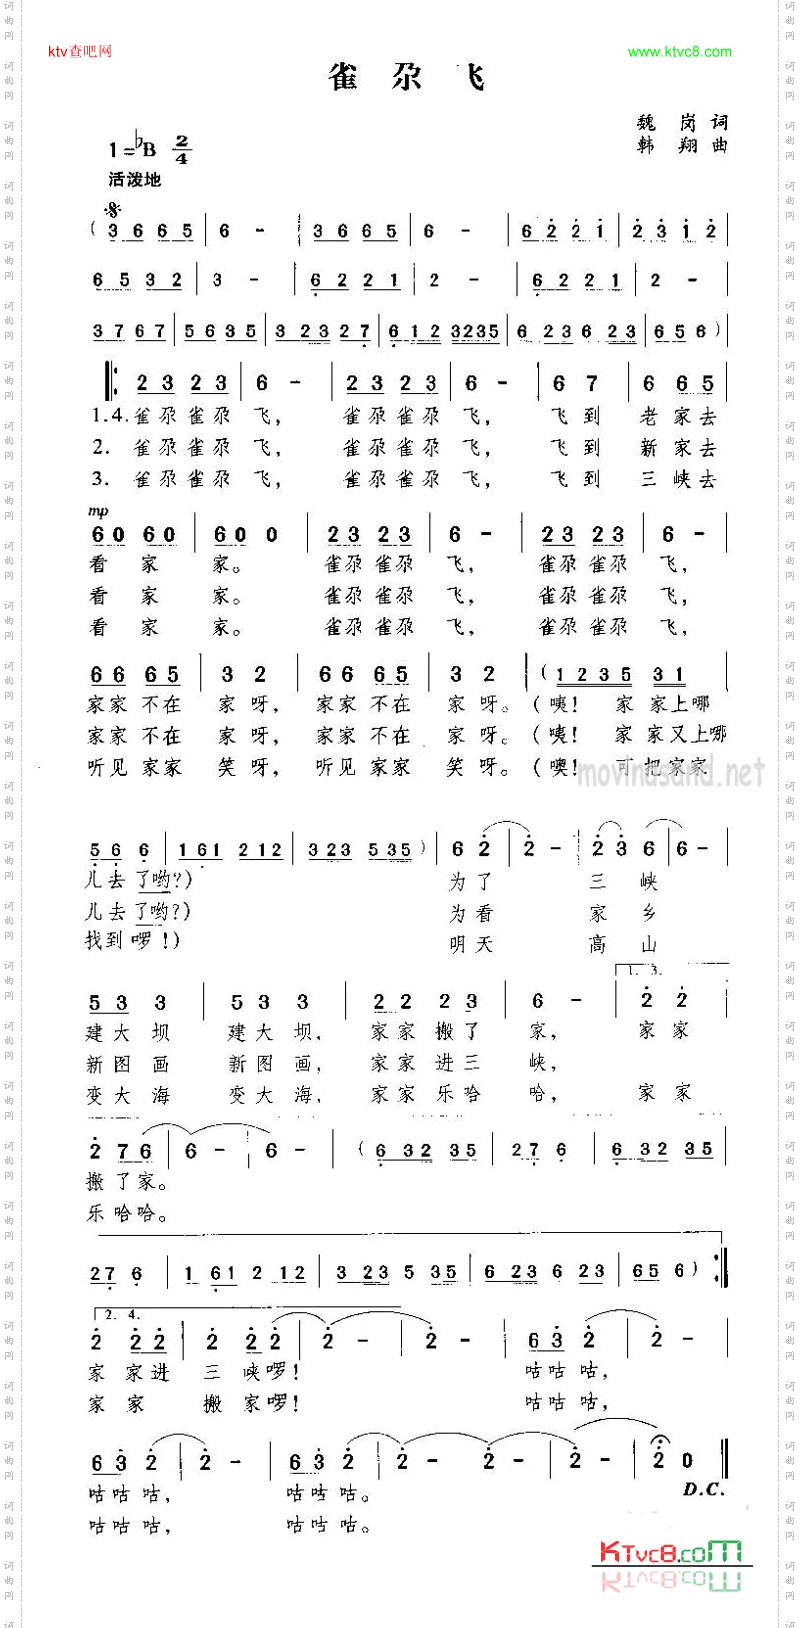 ktv查吧网
www.ktvc8.com
雀 尕 飞
魏 岗 词
韩 翔 曲
1=♭B 2/4
活泼地
( 3 6 6 5 | 6 - | 3 6 6 5 | 6 - | 6 2 2 1 | 2 3 1 2 |
6 5 3 2 | 3 - | 6 2 2 1 | 2 - | 6 2 2 1 | 2 - |
3 7 6 7 | 5 6 3 5 | 3 23 2 7 | 6 12 3235 | 6 23 6 23 | 65 6 )
2 3 2 3 | 6 - | 2 3 2 3 | 6 - | 6 7 | 6 6 5
1.4.雀尕雀尕飞, 雀尕雀尕飞, 飞到 老家去
2. 雀尕雀尕飞, 雀尕雀尕飞, 飞到 新家去
3. 雀尕雀尕飞, 雀尕雀尕飞, 飞到 三峡去
mp
60 60 | 60 0 | 2 3 2 3 | 6 - | 2 3 2 3 | 6 - |
看 家 家。 雀尕雀尕 飞, 雀尕雀尕 飞,
看 家 家。 雀尕雀尕 飞, 雀尕雀尕 飞,
看 家 家。 雀尕雀尕 飞, 雀尕雀尕 飞,
6 6 6 5 | 3 2 | 6 6 6 5 | 3 2 | ( 1235 31
家家不在 家呀, 家家不在 家呀。(咦! 家家上哪
家家不在 家呀, 家家不在 家呀。(咦! 家家又上哪
听见家家 笑呀, 听见家家 笑呀。(噢! 可把家家
movinasand.net
5 6 6 | 1 61 2 12 | 3 23 5 35 ) | 6 2 | 2 - | 2 3 6 | 6 -
儿去了哟?) 为了 三 峡
儿去了哟?) 为看 家 乡
找到啰!) 明天 高 山
1. 3.
5 3 3 | 5 3 3 | 2 2 2 3 | 6 - | 2 2
建大坝 建大坝, 家家搬了 家, 家家
新图画 新图画, 家家进三 峡,
变大海 变大海, 家家乐哈 哈, 家家
2 7 6 | 6 - | 6 - | ( 6 32 35 | 27 6 | 6 32 35
搬了家。
乐哈哈。
27 6 | 1 61 2 12 | 3 23 5 35 | 6 23 6 23 | 65 6 )
2. 4.
2 2 2 | 2 2 2 | 2 - | 2 - | 6 3 2 | 2 -
家 家进 三 峡啰! 咕咕咕,
家 家 搬 家啰! 咕咕咕,
6 3 2 | 2 - | 6 3 2 | 2 - | 2 - | 2 - | 2 0
D.C.
咕咕咕, 咕咕咕。
咕咕咕, 咕咕咕。
KTvc8.com